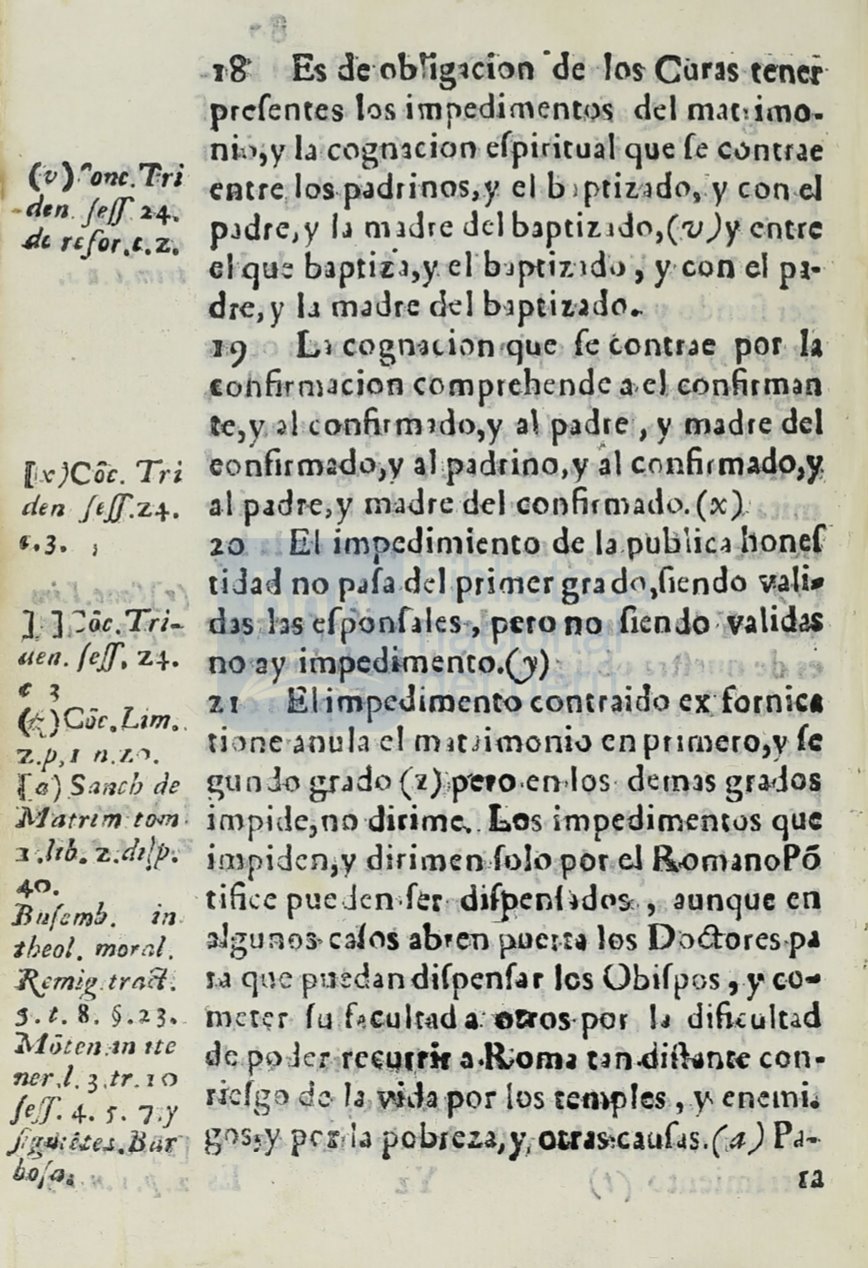 18 Es de obligacion de los Curas tener
presentes los impedimentos del matrimo-
nio,y la cognacion eſpiritual que ſe contrae
entre los padrinos,y el baptizado, y con el
padre,y la madre del baptizado,(v)y entre
el que baptiza,y el baptizado, y con el pa-
dre,y la madre del baptizado.
19 La cognacion que ſe contrae por la
confirmacion comprehende a el confirman
te,y al confirmado,y al padre, y madre del
confirmado,y al padrino,y al confirmado,y
al padre,y madre del confirmado.(x)
20 El impedimiento de la publica honeſ
tidad no paſa del primer grado,ſiendo vali-
das las eſponſales, pero no ſiendo validas
no ay impedimento.(y)
21 El impedimento contraido ex fornica
tione anula el matrimonio en primero,y ſe
gundo grado (z) pero en los demas grados
impide,no dirime. Los impedimentos que
impiden,y dirimen ſolo por el Romano Põ
tifice pueden ſer diſpenſados, aunque en
algunos caſos abren puerta los Doctores pa
ra que puedan diſpenſar los Obiſpos, y co-
meter ſu facultad a otros por la dificultad
de poder recurrir a Roma tan diſtante con-
rieſgo de la vida por los temples, y enemi-
gos,y por la pobreza,y, otras cauſas.(a) Pa-
ra
(v) Conc.Tri
den. ſeſſ 24.
de refor.c.2.
(x)Cõc. Tri
den ſeſſ.24.
c.3.
Cõc.Tri-
den. ſeſſ. 24.
c 3
(z)Cõc.Lim.
2.p,1 n.20.
(a) Sanch de
Matrim tom
lib. 2.diſp.
40.
Buſemb. in
theol. moral.
Remig.tract.
5.t. 8. §.23.
Mõten.in ite
ner,l. 3.tr.10
ſeſſ. 4. 5. 7.y
ſiguiẽtes.Bar
boſa.